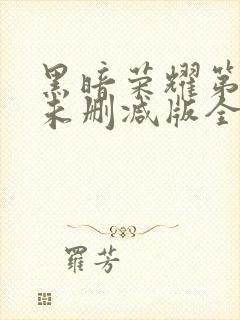 黑暗荣耀第
未删减版全
羅芳